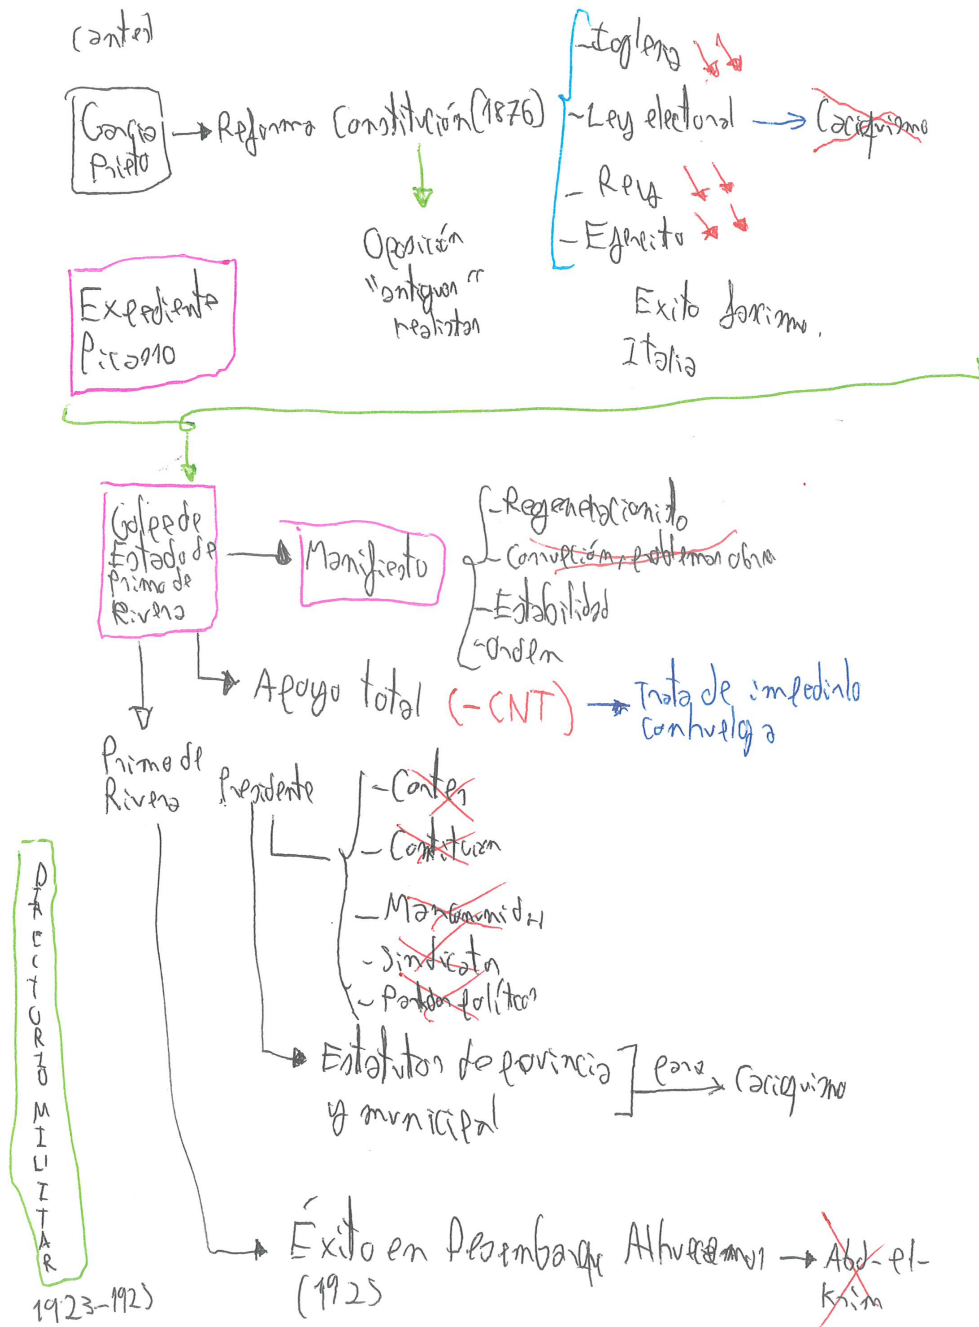 (antes)
García
Prieto
Reforma Constitución (1876)
- Iglesia
- Ley electoral
Caciquismo
- Rey
- Ejército
Oposición
"antiguos"
realistas
Expediente
Picasso
Exito fascismo.
Italia
Golpe de
Estado de
Primo de
Rivera
Manifiesto
- Regeneracionista
- Corrupción, problemas obre
- Estabilidad
- Orden
Apoyo total (-CNT)
Trata de impedirlo
con huelga
Primo de
Rivera
Presidente
- Cortes
- Constitucion
- Mancomunid
- Sindicatos
- Partidos políticos
Estatutos de provincia
y municipal
para
Caciquismo
DIRECTORIO MILITAR
1923-1925
Éxito en Desembarque Alhucemas
(1925
Abd-el-
Krim